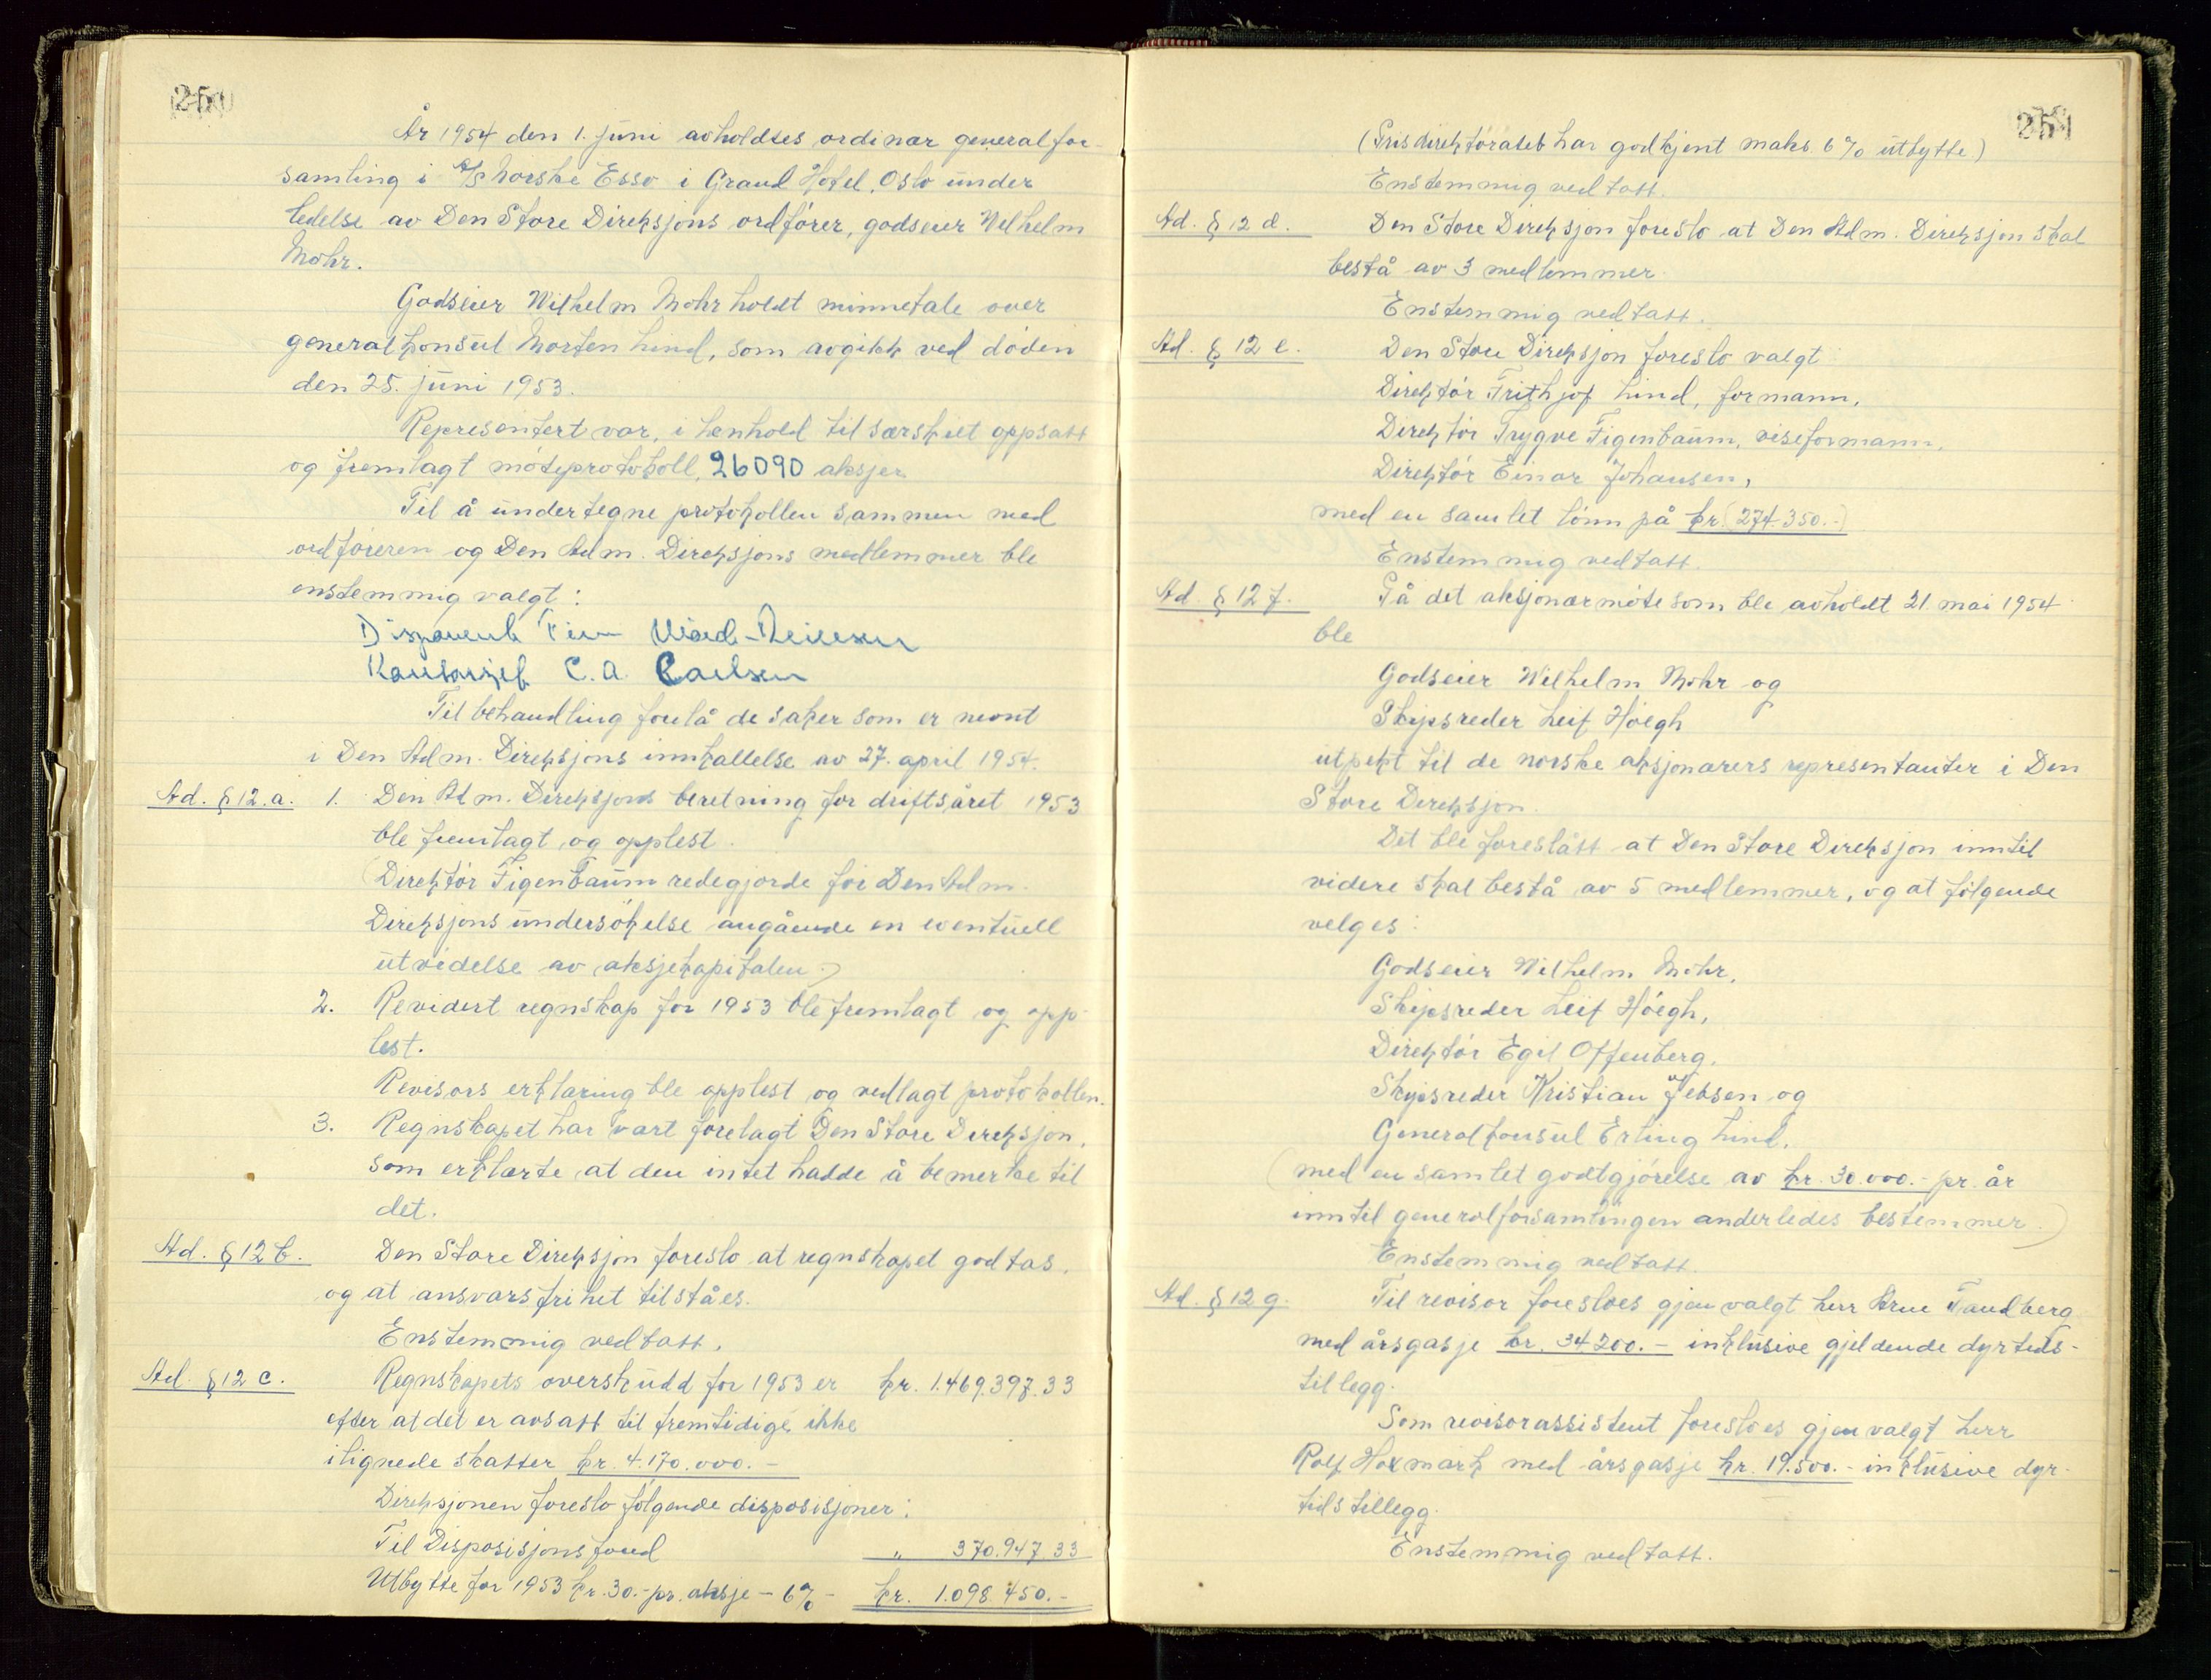 250
År 1954 den 1. juni avholdtes ordinær generalfor-
samling i A/S Norske Esso i Grand Hotel, Oslo under
ledelse av Den Store Direksjons ordfører, godseier Wilhelm
Mohr.
Godseier Wilhelm Mohr holdt minnetale over
generalkonsul Morten Lind, som avgikk ved døden
den 25. juni 1953.
Representert var, i henhold til særskilt oppsatt
og fremlagt møteprotokoll, 26090 aksjer
Til å undertegne protokollen sammen med
ordføreren og Den Adm. Direksjons medlemmer ble
enstemmig valgt:
Disponent
Kontorsjef C. A. Carlsen
Til behandling forelå de saker som er nevnt
i Den Adm. Direksjons innkallelse av 27. april 1954.
Ad. § 12. a. 1. Den Adm. Direksjons beretning for driftsåret 1953
ble fremlagt og opplest.
(Direktør Figenbaum redegjorde for Den Adm.
Direksjons undersøkelse angående en eventuell
utvidelse av aksjekapitalen.)
2. Revidert regnskap for 1953 ble fremlagt og opp-
lest.
Revisors erklæring ble opplest og vedlagt protokollen.
3. Regnskapet har vært forelagt Den Store Direksjon,
som erklærte at den intet hadde å bemerke til
det.
Ad. § 12 b. Den Store Direksjon foreslo at regnskapet godtas,
og at ansvarsfrihet tilståes.
Enstemmig vedtatt.
Ad. § 12 c. Regnskapets overskudd for 1953 er kr. 1.469.397.33
efter at det er avsatt til fremtidige ikke
ilignede skatter kr. 4.170.000.-
Direksjonen foreslo følgende disposisjoner:
Til Disposisjonsfond " 370.947.33
Utbytte for 1953 kr. 30.- pr. aksje - 6% - kr. 1.098.450.-
251
(Prisdirektoratet har godkjent maks. 6% utbytte)
Enstemmig vedtatt.
Ad. § 12 d. Den Store Direksjon foreslo at Den Adm. Direksjon skal
bestå av 3 medlemmer.
Enstemmig vedtatt.
Ad. § 12 e. Den Store Direksjon foreslo valgt
Direktør Frithjof Lind, formann,
Direktør Trygve Figenbaum, viseformann,
Direktør Einar Johansen,
med en samlet lønn på kr. (274.350.-)
Enstemmig vedtatt.
Ad. § 12 f. På det aksjonærmøte som ble avholdt 21. mai 1954
ble
Godseier Wilhelm Mohr og
Skipsreder Leif Höegh
utpekt til de norske aksjonærers representanter i Den
Store Direksjon.
Det ble foreslått at Den Store Direksjon inntil
videre skal bestå av 5 medlemmer, og at følgende
velges:
Godseier Wilhelm Mohr,
Skipsreder Leif Höegh,
Direktør Egil Offenberg,
Skipsreder Kristian Jebsen og
Generalkonsul Erling Lind,
(med en samlet godtgjørelse av kr. 30.000.- pr. år
inntil generalforsamlingen anderledes bestemmer.)
Enstemmig vedtatt.
Ad. § 12 g. Til revisor foresloes gjenvalgt herr Arne Tandberg
med årsgasje kr. 34200.- inklusive gjeldende dyrtids-
tillegg.
Som revisorassistent foresloes gjenvalgt herr
Rolf Hoxmark med årsgasje kr. 19.500.- inklusive dyr-
tidstillegg.
Enstemmig vedtatt.